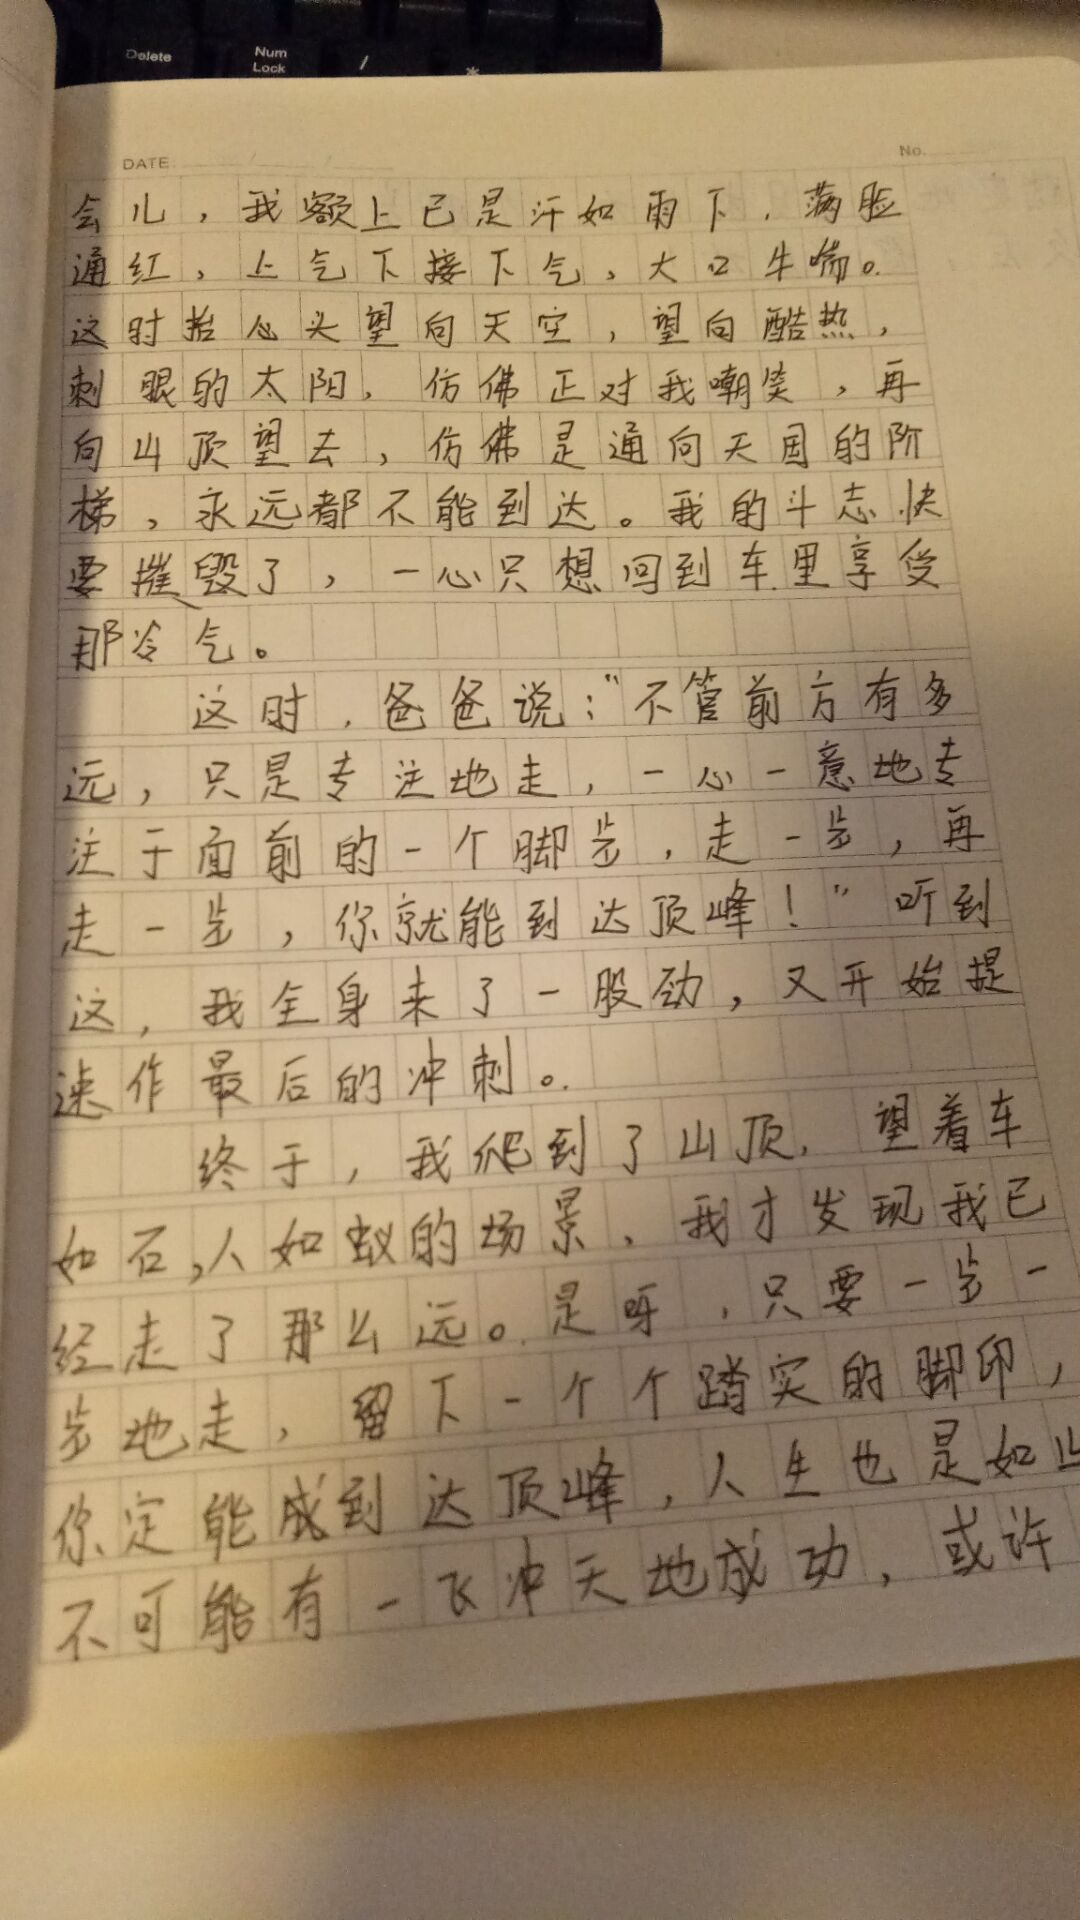 Delete
Num
Lock
/
*
DATE / /
No.
会儿，我额上已是汗如雨下，满脸
通红，上气下接下气，大口牛喘。
这时抬心头望向天空，望向酷热，
刺眼的太阳，仿佛正对我嘲笑，再
向山顶望去，仿佛是通向天国的阶
梯，永远都不能到达。我的斗志快
要摧毁了，一心只想回到车里享受
那冷气。
这时，爸爸说：“不管前方有多
远，只是专注地走，一心一意地专
注于面前的一个脚步，走一步，再
走一步，你就能到达顶峰！”听到
这，我全身来了一股劲，又开始提
速作最后的冲刺。
终于，我爬到了山顶，望着车
如石，人如蚁的场景，我才发现我已
经走了那么远。是呀，只要一步一
步地走，留下一个个踏实的脚印，
你定能成到达顶峰，人生也是如止
不可能有一飞冲天地成功，或许